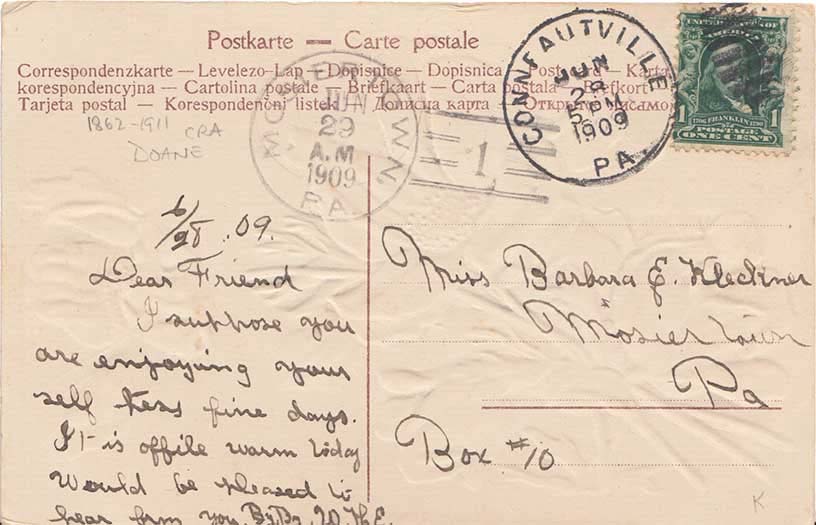 Postkarte — Carte postale
Correspondenzkarte — Levelezo-Lap — Dopisnice — Dopisnica — Post card — Karta
korespondencyjna — Cartolina postale — Briefkaart — Carta postala — Brefkort
Tarjeta postal — Korespondenčni listek — Дописна карта — Открытое письмо
1862-1911 CRA
DOANE
MOSIERTOWN
JUN
29
A.M
1909
PA.
1
CONNEAUTVILLE
JUN
28
5 PM
1909
PA.
UNITED STATES OF
AMERICA
1706 FRANKLIN 1790
1 POSTAGE 1
ONE CENT
6/28 .09.
Dear Friend
I suppose you
are enjoying your
self thess fine days.
It is offile warm today
Would be pleased to
hear frm you. By By
Miss Barbara E. Kleckner
Mosiertown
Pa
Box #10
K